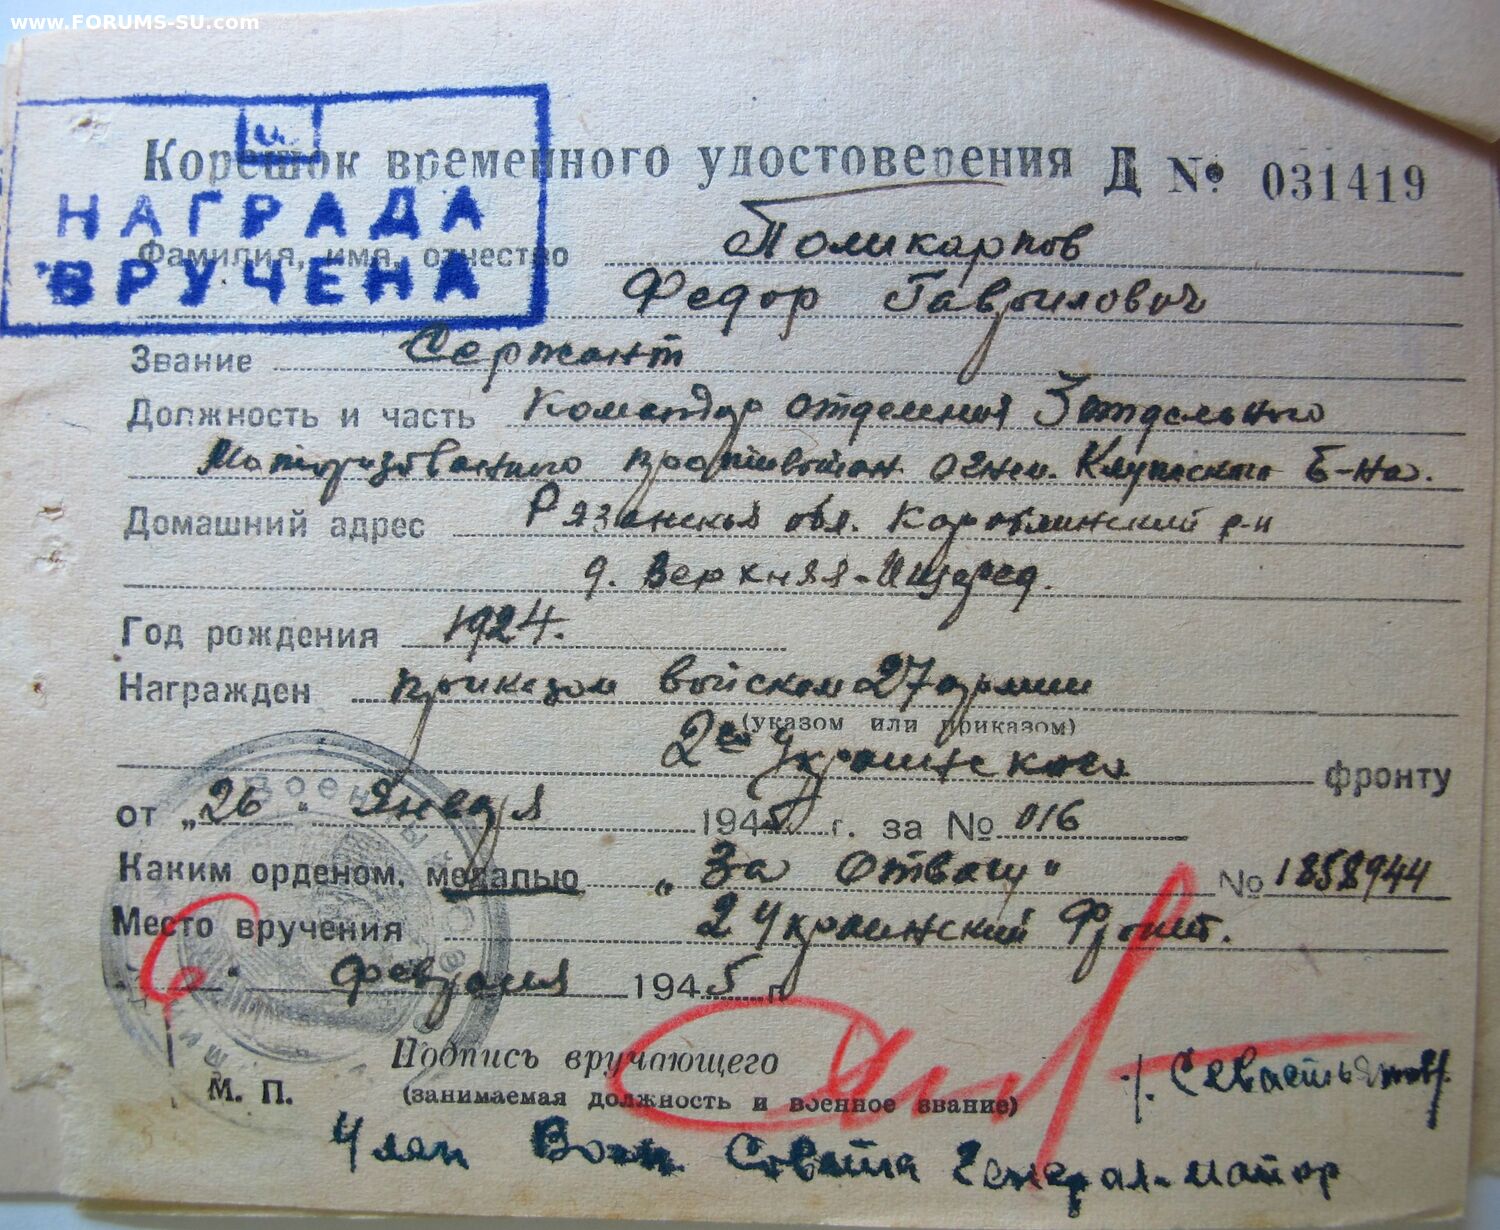 www.FORUMS-SU.com
и.
НАГРАДА
ВРУЧЕНА
Корешок временного удостоверения Д № 031419
Фамилия, имя, отчество Поликарпов
Федор Гаврилович
Звание Сержант
Должность и часть Командир отделения 3 отдельного
Моторизованного противотан. огнем. Клупского б-на.
Домашний адрес Рязанская обл. Кораблинский р-н
д. Верхняя-Ищеред.
Год рождения 1924.
Награжден приказом войскам 27 армии
(указом или приказом)
2го Украинского фронту
от „26" Января 1945 г. за № 016
Каким орденом, медалью „За Отвагу" № 1858944
Место вручения 2 Украинский Фронт.
„6" февраля 1945 г.
Подпись вручающего
(занимаемая должность и военное звание)
М. П.
/. Севастьянов/.
Член Воен. Совета Генерал-майор